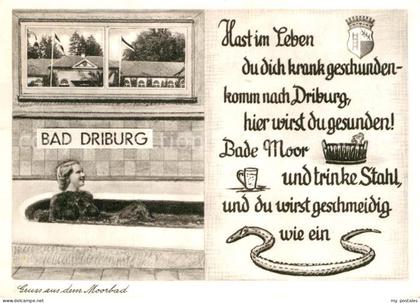 Hast im Leben
du dich krank geschunden-
komm nach Driburg,
hier wirst du gesunden!
Bade Moor
und trinke Stahl,
und du wirst geschmeidig
wie ein
BAD DRIBURG
Gruss aus dem Moorbad
www.my-postales.com